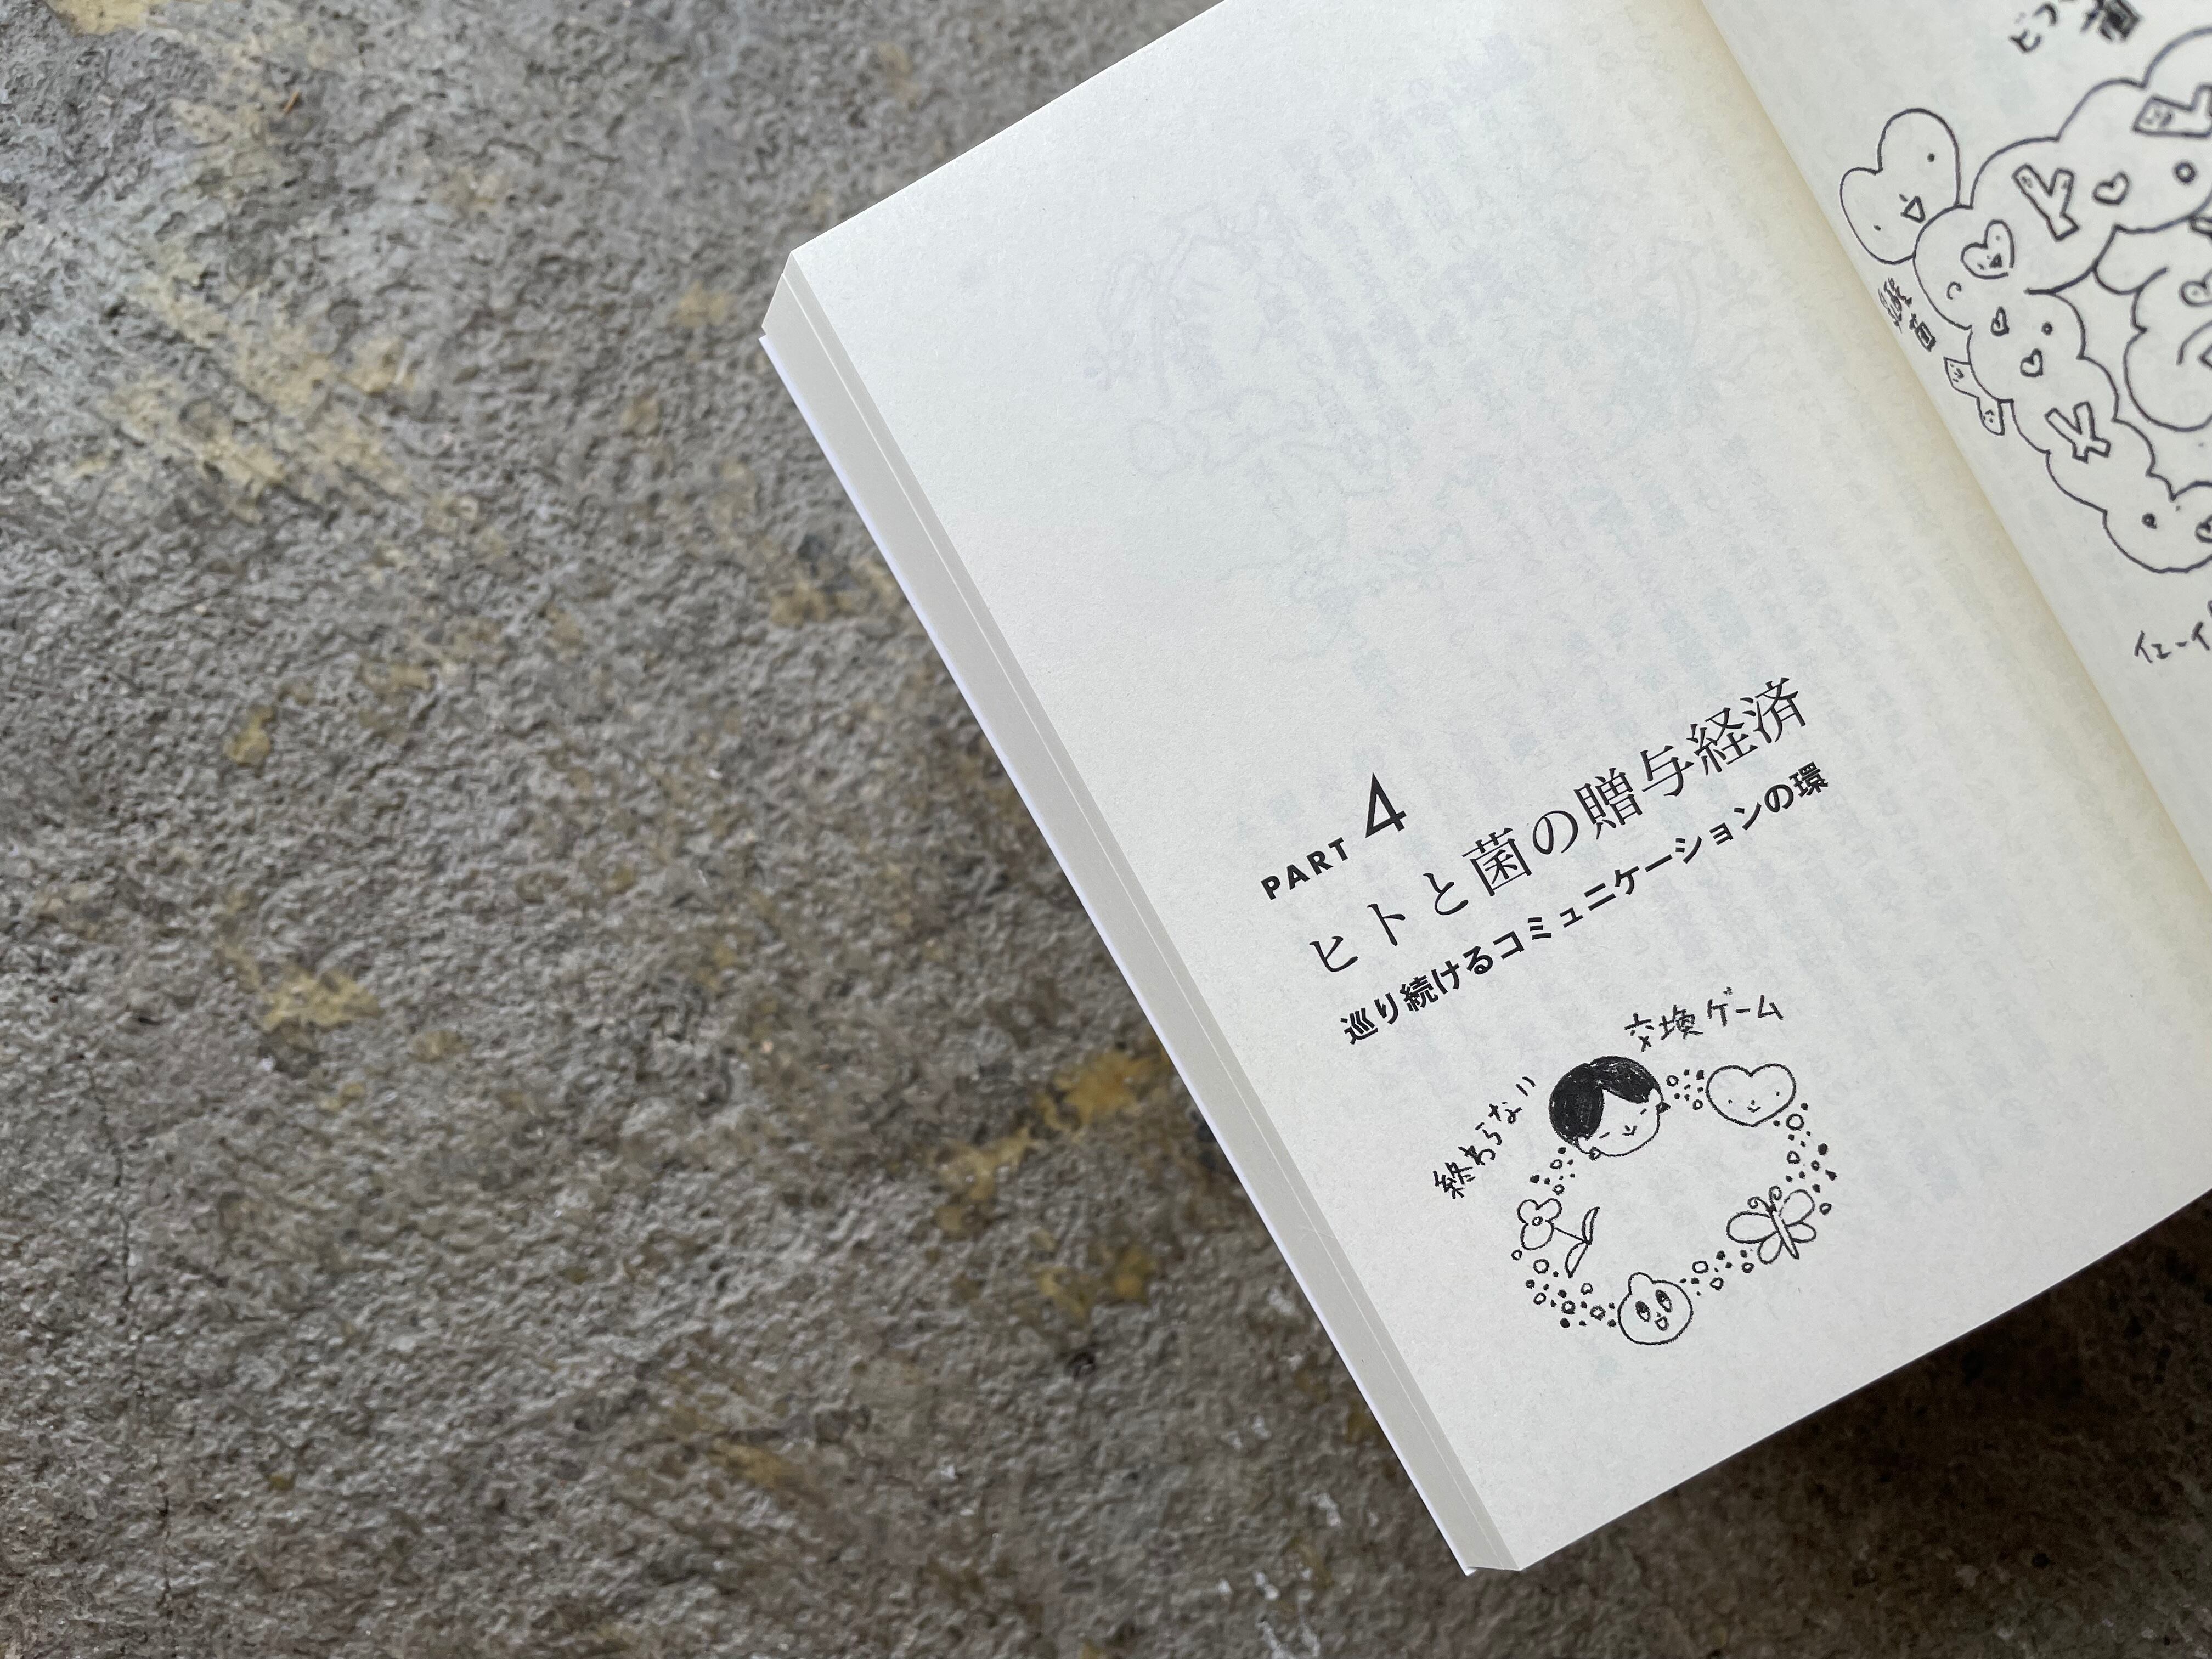 PART 4
ヒトと菌の贈与経済
巡り続けるコミュニケーションの環
終わらない
交換ゲーム
菌
イエーイ